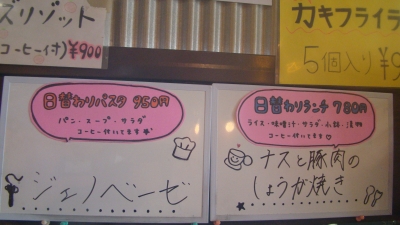 ズリゾット
コーヒー付)¥900
カキフライ
5個入り¥9
日替わりパスタ 950円
パン・スープ・サラダ
コーヒー付いてます
ジェノベーゼ
日替わりランチ 780円
ライス・味噌汁・サラダ・小鉢・漬物
コーヒー付いてます♡
ナスと豚肉の
しょうが焼き